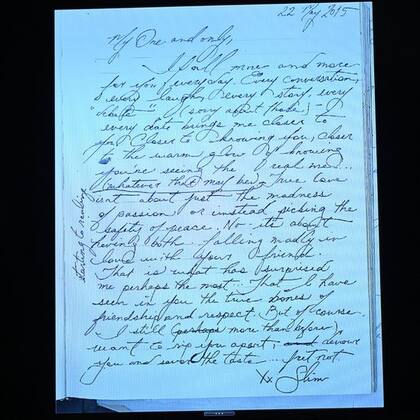 22 May 2015
My One and only,
I fall more and more
for you everyday. Every conversation,
every laugh, every story, every
(I'm sorry about those!) –
every date brings me closer to
you. Closer to knowing you, closer
to the warm glow of knowing
you're seeing the real me...
(whatever that may be). True love
isn't about just the madness
of passion or instead picking the
safety of peace. No. it's about
having both. falling madly in
love with your friend.
That is what has surprised
me perhaps the most. That I have
seen in you the true bones of
friendship and respect. But of course
I still perhaps more than before
want to rip you apart, and devour
you and savor the taste... fret not.
xx Slim
starting to realize